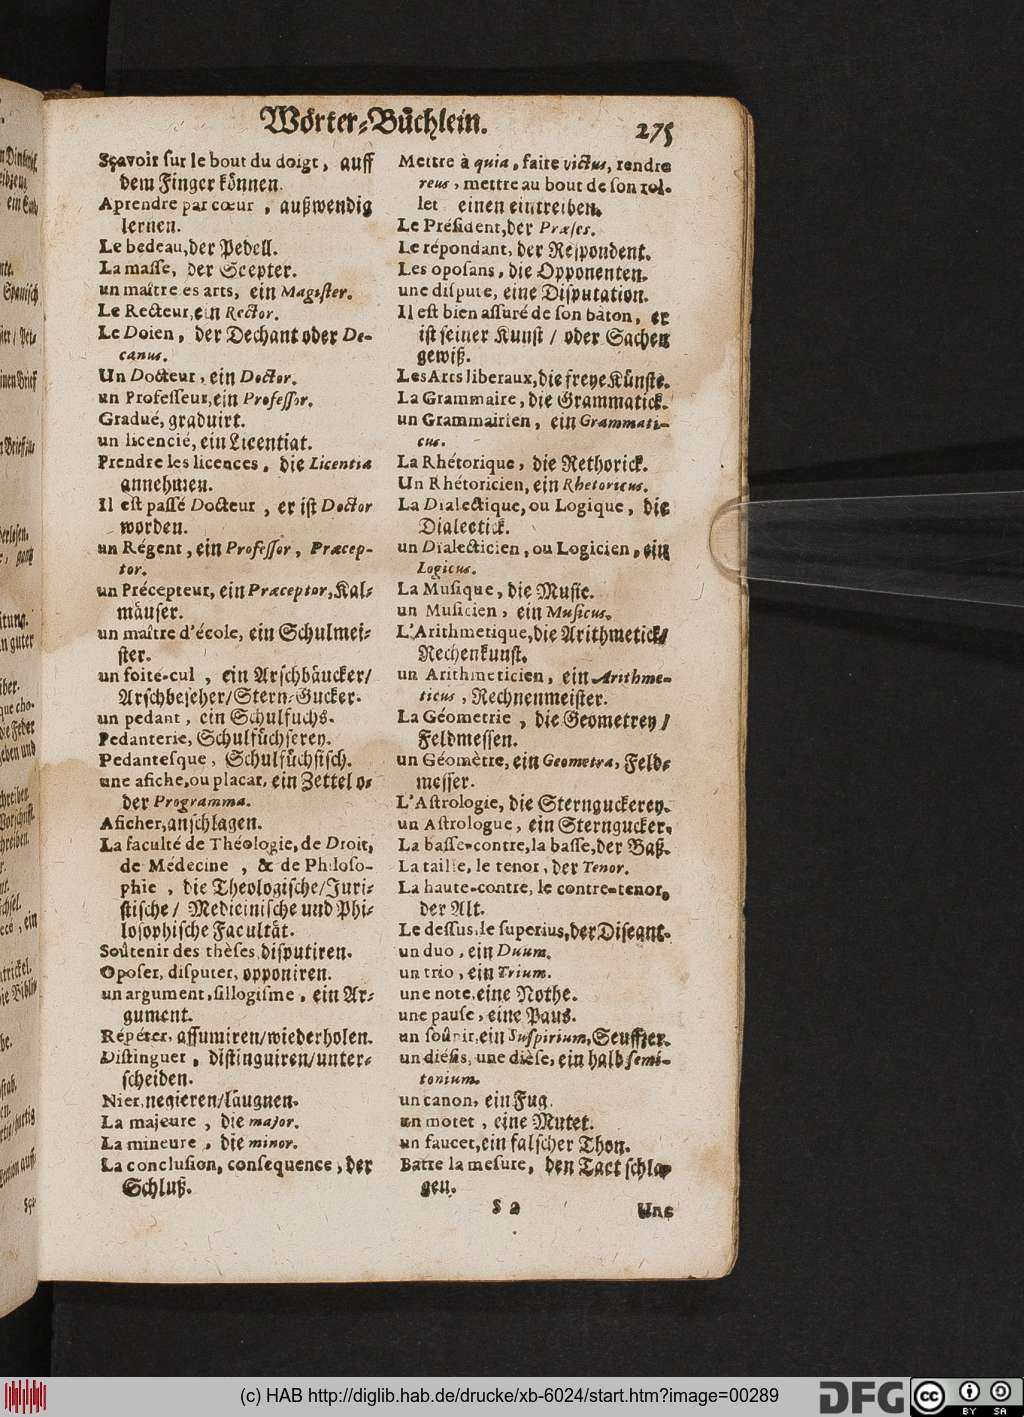 Wörter-Büchlein. 275
Sçavoir sur le bout du doigt, auff
dem Finger können.
Aprendre par cœur, außwendig
lernen.
Le bedeau, der Pedell.
La masse, der Scepter.
un maître es arts, ein Magister.
Le Recteur, ein Rector.
Le Doien, der Dechant oder De-
canus.
Un Docteur, ein Doctor.
un Professeur, ein Professor.
Gradué, graduirt.
un licencié, ein Licentiat.
Prendre les licences, die Licentia
annehmen.
Il est passé Docteur, er ist Doctor
worden.
un Régent, ein Professor, Præcep-
tor.
un Précepteur, ein Præceptor, Kal-
mäuser.
un maître d'école, ein Schulmei-
ster.
un foite-cul, ein Arschbäucker/
Arschbeseher/Stern-Gucker.
un pedant, ein Schulfuchs.
Pedanterie, Schulfüchserey.
Pedantesque, Schulfüchsisch.
une afiche, ou placat, ein Zettel o-
der Programma.
Aficher, anschlagen.
La faculté de Théologie, de Droit,
de Medecine, & de Philoso-
phie, die Theologische/Juri-
stische/ Medicinische und Phi-
losophische Facultät.
Soûtenir des thèses, disputiren.
Oposer, disputer, opponiren.
un argument, sillogisme, ein Ar-
gument.
Répéter, assumiren/wiederholen.
Distinguer, distinguiren/unter-
scheiden.
Nier, negieren/läugnen.
La majeure, die major.
La mineure, die minor.
La conclusion, consequence, der
Schluß.
Mettre à quia, faire victus, rendre
reus, mettre au bout de son rol-
let einen eintreiben.
Le Président, der Præses.
Le répondant, der Respondent.
Les oposans, die Opponenten.
une dispute, eine Disputation.
Il est bien assuré de son bâton, er
ist seiner Kunst / oder Sachen
gewiß.
Les Arts liberaux, die freye Künste.
La Grammaire, die Grammatick.
un Grammairien, ein Grammati-
cus.
La Rhétorique, die Rethorick.
Un Rhétoricien, ein Rhetoricus.
La Dialectique, ou Logique, die
Dialectick.
un Dialecticien, ou Logicien, ein
Logicus.
La Musique, die Music.
un Musicien, ein Musicus.
L'Arithmetique, die Arithmetick/
Rechenkunst.
un Arithmeticien, ein Arithme-
ticus, Rechnenmeister.
La Géometrie, die Geometrey/
Feldmessen.
un Géomètre, ein Geometra, Feld-
messer.
L'Astrologie, die Sternguckerey.
un Astrologue, ein Sterngucker.
La basse-contre, la basse, der Baß.
La taille, le tenor, der Tenor.
La haute-contre, le contre-tenor,
der Alt.
Le dessus, le superius, der Discant.
un duo, ein Duum.
un trio, ein Trium.
une note, eine Nothe.
une pause, eine Paus.
un soûpir, ein Suspirium, Seuffzer.
un diésis, une dièse, ein halb semi-
tonium.
un canon, ein Fug.
un motet, eine Mutet.
un faucet, ein falscher Thon.
Batre la mesure, den Tact schla-
gen.
S 2 Une
(c) HAB http://diglib.hab.de/drucke/xb-6024/start.htm?image=00289
DFG
cc BY SA